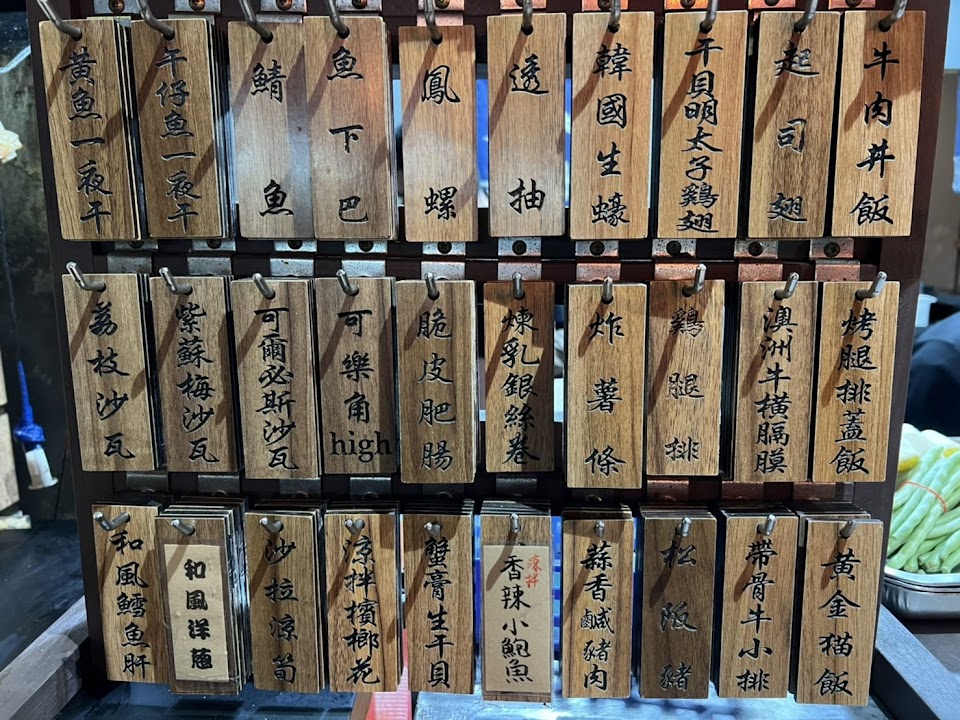 黃魚一夜干
午仔魚一夜干
鯖魚
魚下巴
鳳螺
透抽
韓國生蠔
干貝明太子鷄翅
起司翅
牛肉丼飯
荔枝沙瓦
紫蘇梅沙瓦
可爾必斯沙瓦
可樂角high
脆皮肥腸
煉乳銀絲卷
炸薯條
鷄腿排
澳洲牛橫膈膜
烤腿排蓋飯
和風鱈魚肝
和風洋蔥
沙拉涼筍
涼拌檳榔花
蟹膏生干貝
涼拌
香辣小鮑魚
蒜香鹹豬肉
松阪豬
帶骨牛小排
黃金猫飯